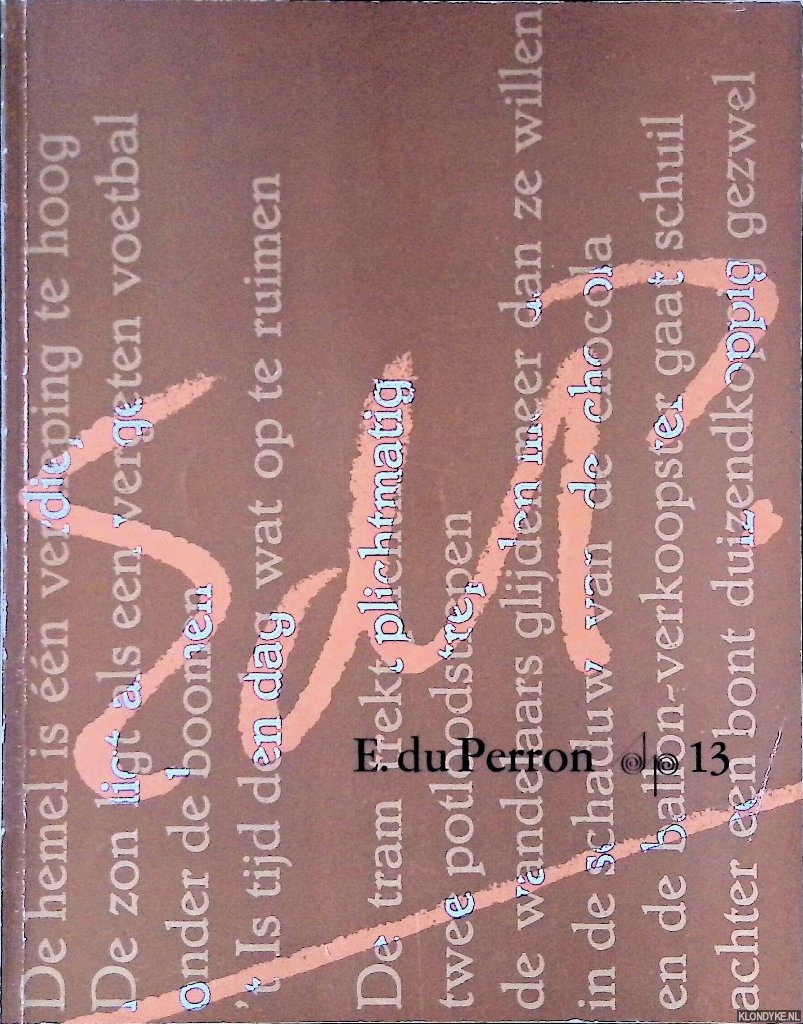 De hemel is één verdieping te hoog
De zon ligt als een vergeten voetbal
onder de boomen
't Is tijd den dag wat op te ruimen
De tram trekt plichtmatig
twee potloodstrepen
de wandelaars glijden meer dan ze willen
in de schaduw van de chocola
en de ballon-verkoopster gaat schuil
achter een bont duizendkoppig gezwel
EdP.
E. du Perron dp 13
KLONDYKE.NL